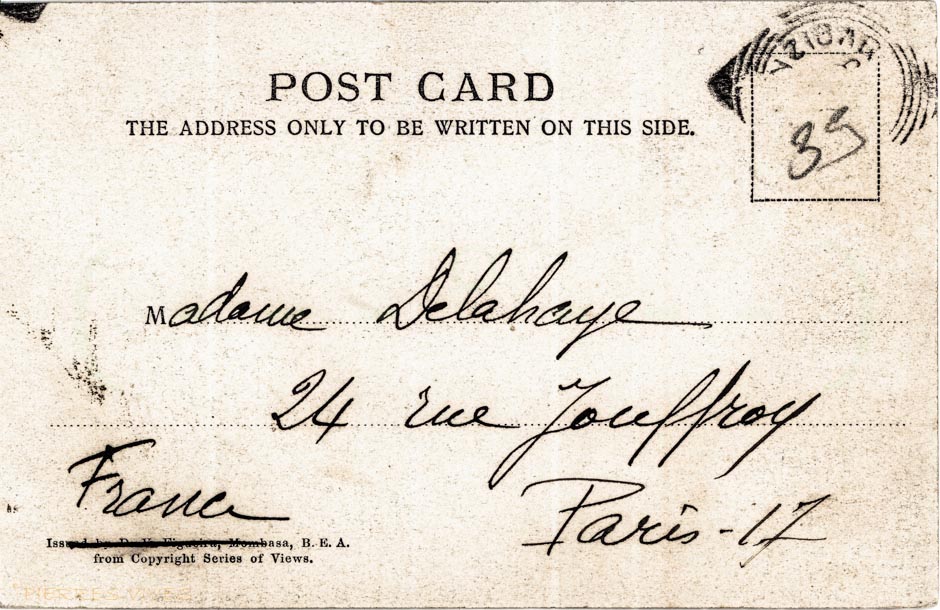 POST CARD
THE ADDRESS ONLY TO BE WRITTEN ON THIS SIDE.
39
Madame Delahaye
24 rue Jouffroy
Paris-17
France
Issued by D. V. Figueira, Mombasa, B. E. A.
from Copyright Series of Views.